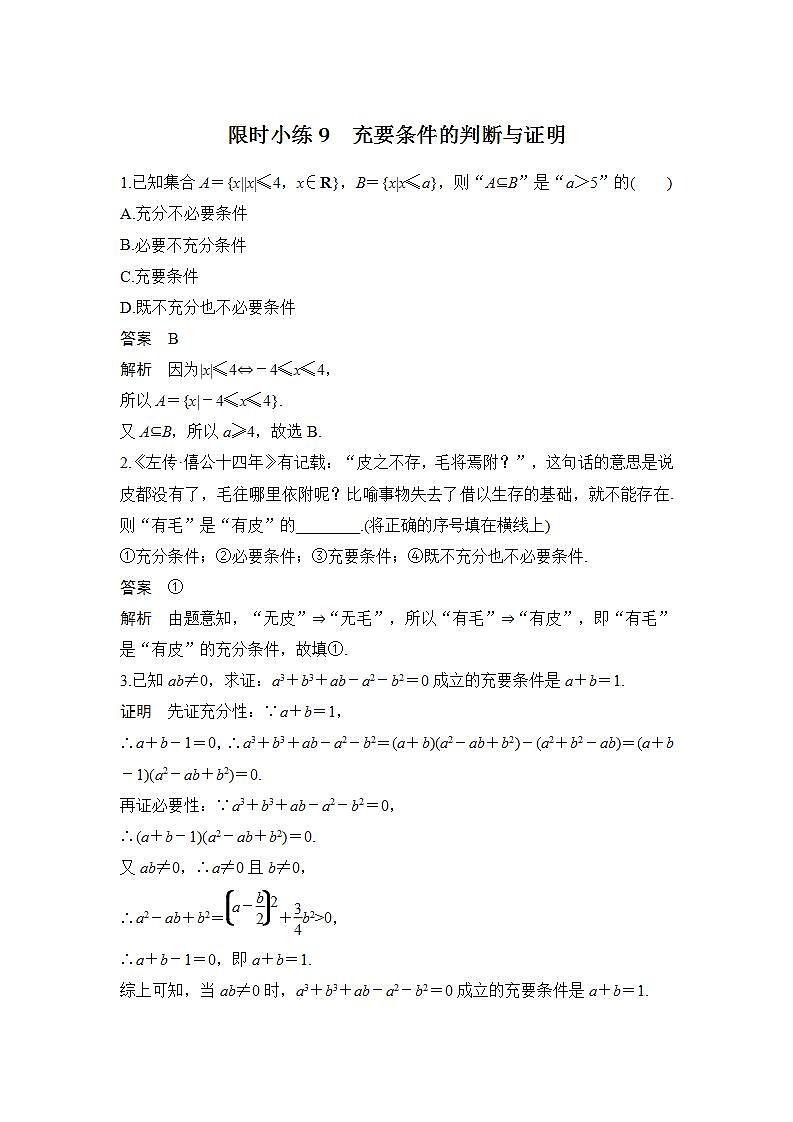 限时小练9　充要条件的判断与证明
1.已知集合A＝{x||x|≤4，x∈R}，B＝{x|x≤a}，则“A⊆B”是“a＞5”的(　　)
A.充分不必要条件
B.必要不充分条件
C.充要条件
D.既不充分也不必要条件
答案　B
解析　因为|x|≤4⇔－4≤x≤4，
所以A＝{x|－4≤x≤4}.
又A⊆B，所以a≥4，故选B.
2.《左传·僖公十四年》有记载：“皮之不存，毛将焉附？”，这句话的意思是说
皮都没有了，毛往哪里依附呢？比喻事物失去了借以生存的基础，就不能存在.
则“有毛”是“有皮”的________.(将正确的序号填在横线上)
①充分条件；②必要条件；③充要条件；④既不充分也不必要条件.
答案　①
解析　由题意知，“无皮”⇒“无毛”，所以“有毛”⇒“有皮”，即“有毛”
是“有皮”的充分条件，故填①.
3.已知ab≠0，求证：a³＋b³＋ab－a²－b²＝0成立的充要条件是a＋b＝1.
证明　先证充分性：∵a＋b＝1，
∴a＋b－1＝0，∴a³＋b³＋ab－a²－b²＝(a＋b)(a²－ab＋b²)－(a²＋b²－ab)＝(a＋b
－1)(a²－ab＋b²)＝0.
再证必要性：∵a³＋b³＋ab－a²－b²＝0，
∴(a＋b－1)(a²－ab＋b²)＝0.
又ab≠0，∴a≠0且b≠0，
∴a²－ab＋b²＝(a－b/2)²＋3/4b²>0，
∴a＋b－1＝0，即a＋b＝1.
综上可知，当ab≠0时，a³＋b³＋ab－a²－b²＝0成立的充要条件是a＋b＝1.